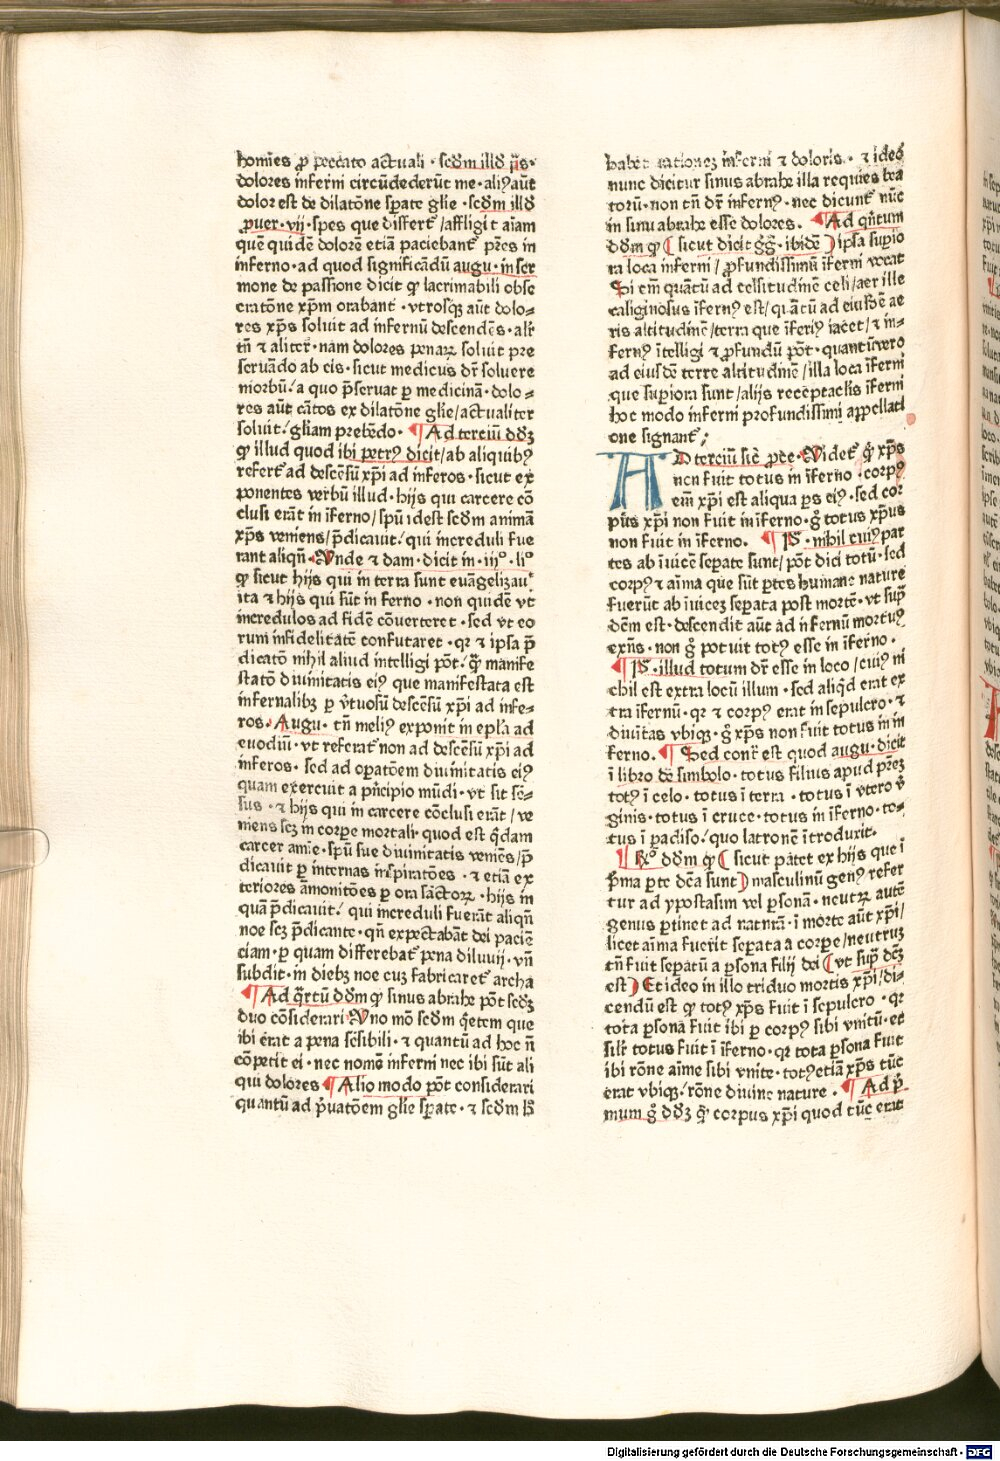 homīes ꝓ peccato actuali · scd̄m illd̄ p̄s·
dolores inferni circūdederūt me · aliꝰ aūt
dolor est de dilatōne sꝑate glīe · scd̄m illd̄
ꝓuer · vij · spes que differt᷑ / affligit aīam
quē quidē dolorē etiā paciebant᷑ pr̄es in
inferno · ad quod significādū augu · in ser
mone de passione dicit ꝙ lacrimabili obse
cratōne xp̄m orabant · vtrosqꝫ aūt dolo⸗
res xp̄s soluit ad infernū descendēs · alr̄
tn̄ ⁊ aliter · nam dolores penaꝝ soluit pre
seruādo ab eis · sicut medicus dr̄ soluere
morbū / a quo p̄seruat ꝑ medicinā · dolo⸗
res aūt cātos ex dilatōne glīe / actualiter
soluit / gliam prebēdo · Ad terciū dd̄ꝫ
ꝙ illud quod ibi petrꝰ dicit / ab aliquibꝰ
refert᷑ ad descēsū xp̄i ad inferos · sicut ex
ponentes verbū illud · hijs qui carcere cō
clusi erāt in īferno / spū idest scd̄m animā
xp̄s veniens / p̄dicauit / qui increduli fue
rant aliqn̄ · Vnde ⁊ dam · dicit in · iij° · li°
ꝙ sicut hijs qui in terra sunt euāgelizau⸗
ita ⁊ hijs qui sūt in ferno · non quidē vt
incredulos ad fidē cōuerteret · sed vt eo
rum infidelitatē confutaret · qr ⁊ ipsa p̄
dicatō nihil aliud intelligi pōt · qͣ̄ manife
statō diuinitatis eiꝰ que manifestata est
infernalibꝫ ꝑ v̓tuosū descēsū xp̄i ad infe⸗
ros · Augu · tn̄ meliꝰ exponit in epl̄a ad
euodiū · vt referat᷑ non ad descēsū xp̄i ad
inferos · sed ad oꝑatōem diuinitatis eiꝰ
quam exercuit a pͥncipio mūdi · vt sit sē⸗
sus · ⁊ hijs qui in carcere cōclusi erāt / ve
niens scꝫ in corpe mortali · quod est q̄dam
carcer aīe · spū sue diuinitatis veniēs / p̄
dicauit ꝑ internas inspiratōes · ⁊ etiā ex
teriores āmonitōes ꝑ ora sāctoꝝ · hijs in
quā p̄dicauit / qui increduli fuerāt aliqn̄
noe scꝫ p̄dicante · qn̄ expectabāt dei paciē
ciam · ꝑ quam differebat᷑ pena diluuij · vn̄
subdit · in diebꝫ noe cuꝫ fabricaret᷑ archa
Ad qͣrtū dd̄m ꝙ sinus abrahe pōt scd̄ꝫ
duo cōsiderari Vno mō scd̄m q̄etem que
ibi erat a pena sēsibili · ⁊ quantū ad hoc n̄
cōpetit ei · nec nomē inferni nec ibi sūt ali
qui dolores Alio modo pōt considerari
quantū ad pͥuatōem glīe sꝑate · ⁊ scd̄m h̄
habet rationeꝫ inferni ⁊ doloris · ⁊ ideo
nunc dicitur sinus abrahe illa requies bea
torū · non tn̄ dr̄ infernꝰ · nec dicunt᷑ nūc
in sinu abrahe esse dolores. Ad qn̄tum
dd̄m ꝙ ( sicut dicit gḡ · ibidē ) ipsa suꝑio
ra loca inferni / ꝓfundissimū īferni vocat
Si em̄ quātū ad celsitudinē celi / aer ille
caliginosus īfernꝰ est / quātū ad eiusdē ae
ris altitudinē / terra que īferiꝰ iacet / ⁊ in⸗
fernꝰ ītelligi ⁊ ꝓfundū pōt · quantū vero
ad eiusdē terre altitudinē / illa loca īferni
que suꝑiora sunt / alijs receptaclis īferni
hoc modo inferni profundissimi appellati
one signant᷑ ;
AD terciū sic ꝓce · Videt᷑ qͣ xp̄s
non fuit totus in īferno · corpꝰ
em̄ xp̄i est aliqua ꝑs eiꝰ · sed cor
pus xp̄i non fuit in īferno · gͦ totus xp̄us
non fuit in īferno. P̄ · nihil cuiꝰ par
tes ab īuicē seꝑate sunt / pōt dici totū · sed
corpꝰ ⁊ aīma que sūt ꝑtes humane nature
fuerūt ab īuiceꝫ seꝑata post mortē · vt supͣ
dc̄m est · descendit aūt ad īnfernū mortuꝰ
exn̄s · non gͦ potuit totꝰ esse in īferno ·
P̄ · illud totum dr̄ esse in loco / cuiꝰ ni
chil est extra locū illum · sed aliqͥd erat ex
tra īfernū · qr ⁊ corpꝰ erat in sepulcro · ⁊
diuītas vbiqꝫ · gͦ xp̄s non fuit totus in in
ferno. Sed contͣ est quod augu · dicit
ī libro de simbolo · totus filius apud pr̄eꝫ
totꝰ ī celo · totus ī terra · totus ī vtero v̓
ginis · totus ī cruce · totus in īferno · to⸗
tus ī padiso / quo latronē ītroduxit.
Rͦ dd̄m ꝙ ( sicut patet ex hijs que ī
pͥma ꝑte dc̄a sunt ) masculinū genꝰ refer
tur ad ypostasim vel ꝑsonā · neutꝝ autē
genus ꝑtinet ad naturā · ī morte aūt xp̄i /
licet aīma fuerit seꝑata a corpe / neutruꝫ
tn̄ fuit seꝑatū a ꝑsona filij dei ( vt supͣ dc̄ꝫ
est ) Et ideo in illo triduo mortis xp̄i / di⸗
cendū est ꝙ totꝰ xp̄s fuit ī sepulcro · qr
tota ꝑsona fuit ibi ꝑ corpꝰ sibi vnitū · et
sil̄r totus fuit ī īferno · qr tota ꝑsona fuit
ibi rōne aīme sibi vnite · totꝰ etiā xp̄s tūc
erat vbiqꝫ / rōne diuine nature · Ad pͥ
mum gͦ dd̄ꝫ qͣ corpus xp̄i quod tūc erat
Digitalisierung gefördert durch die Deutsche Forschungsgemeinschaft - DFG